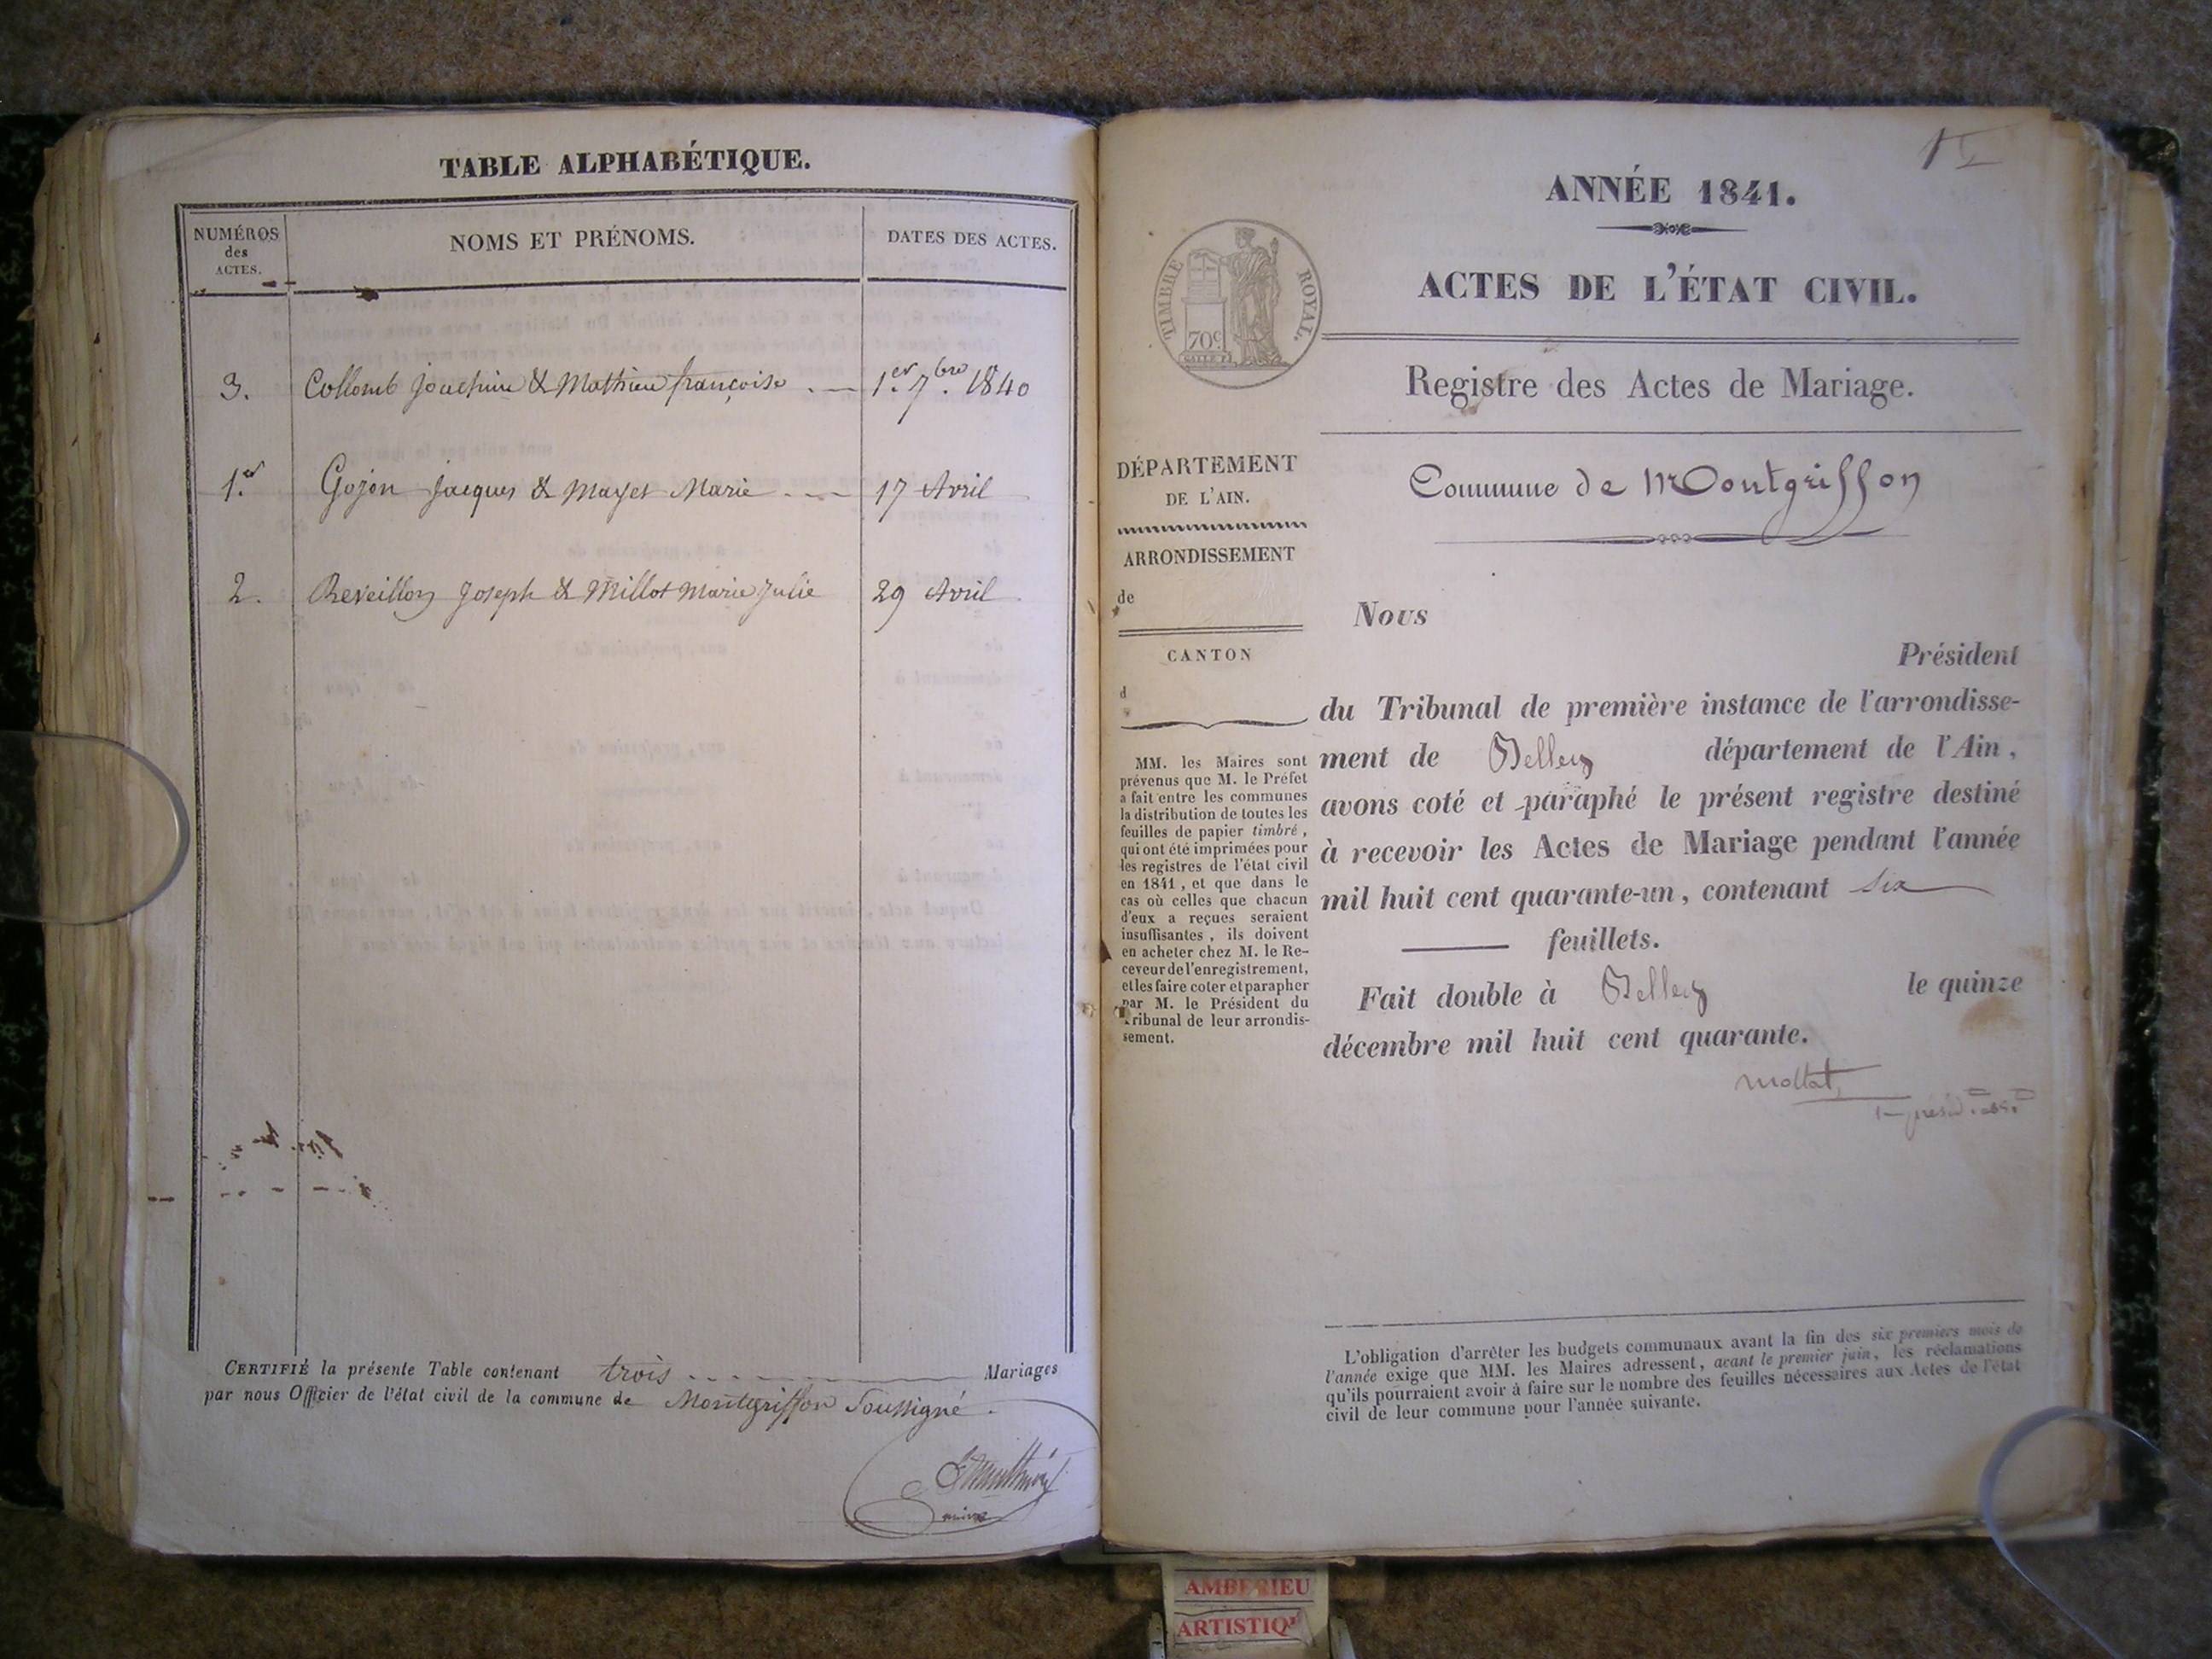 TABLE ALPHABÉTIQUE.
NUMÉROS
des
ACTES.
NOMS ET PRÉNOMS.
DATES DES ACTES.
3. Collomb Joachim & Mathieu françoise 1.er 7.bre 1840
1.er Gojon Jacques & Mayet Marie 17 Avril
2. Reveillon Joseph & Millot Marie Julie 29 Avril
CERTIFIÉ la présente Table contenant trois Mariages
par nous Officier de l'état civil de la commune de Montgriffon Soussigné.
maire
ANNÉE 1841.
ACTES DE L'ÉTAT CIVIL.
TIMBRE ROYAL.
70c
Registre des Actes de Mariage.
Commune de Montgriffon
DÉPARTEMENT
DE L'AIN.
ARRONDISSEMENT
de
CANTON
d
MM. les Maires sont
prévenus que M. le Préfet
a fait entre les communes
la distribution de toutes les
feuilles de papier timbré,
qui ont été imprimées pour
les registres de l'état civil
en 1841, et que dans le
cas où celles que chacun
d'eux a reçues seraient
insuffisantes, ils doivent
en acheter chez M. le Re-
ceveur de l'enregistrement,
et les faire coter et parapher
par M. le Président du
Tribunal de leur arrondis-
sement.
Nous
Président
du Tribunal de première instance de l'arrondisse-
ment de Belley département de l'Ain,
avons coté et paraphé le présent registre destiné
à recevoir les Actes de Mariage pendant l'année
mil huit cent quarante-un, contenant six
feuillets.
Fait double à Belley le quinze
décembre mil huit cent quarante.
L'obligation d'arrêter les budgets communaux avant la fin des six premiers mois de
l'année exige que MM. les Maires adressent, avant le premier juin, les réclamations
qu'ils pourraient avoir à faire sur le nombre des feuilles nécessaires aux Actes de l'état
civil de leur commune pour l'année suivante.
AMBERIEU
ARTISTIQU